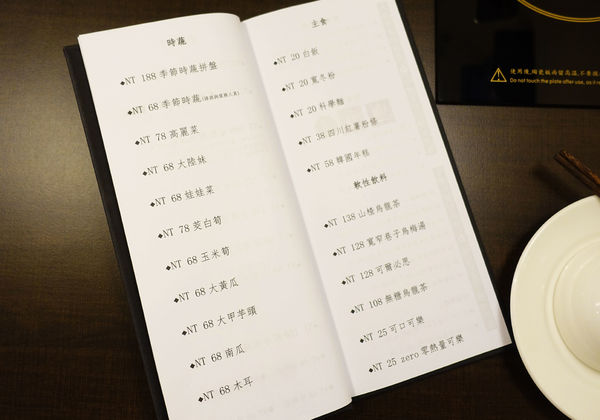 時蔬
◆NT 188 季節時蔬拼盤
◆NT 68 季節時蔬
◆NT 78 高麗菜
◆NT 68 大陸妹
◆NT 68 娃娃菜
◆NT 78 茭白筍
◆NT 68 玉米筍
◆NT 68 大黃瓜
◆NT 68 大甲芋頭
◆NT 68 南瓜
◆NT 68 木耳
主食
◆NT 20 白飯
◆NT 20 寬冬粉
◆NT 20 科學麵
◆NT 38 四川紅薯粉條
◆NT 58 韓國年糕
軟性飲料
◆NT 138 山楂烏龍茶
◆NT 128 寬窄巷子烏梅湯
◆NT 128 可爾必思
◆NT 108 無糖烏龍茶
◆NT 25 可口可樂
◆NT 25 zero 零熱量可樂
使用後,陶瓷板尚留高溫,不要
Do not touch the plate after use, as it